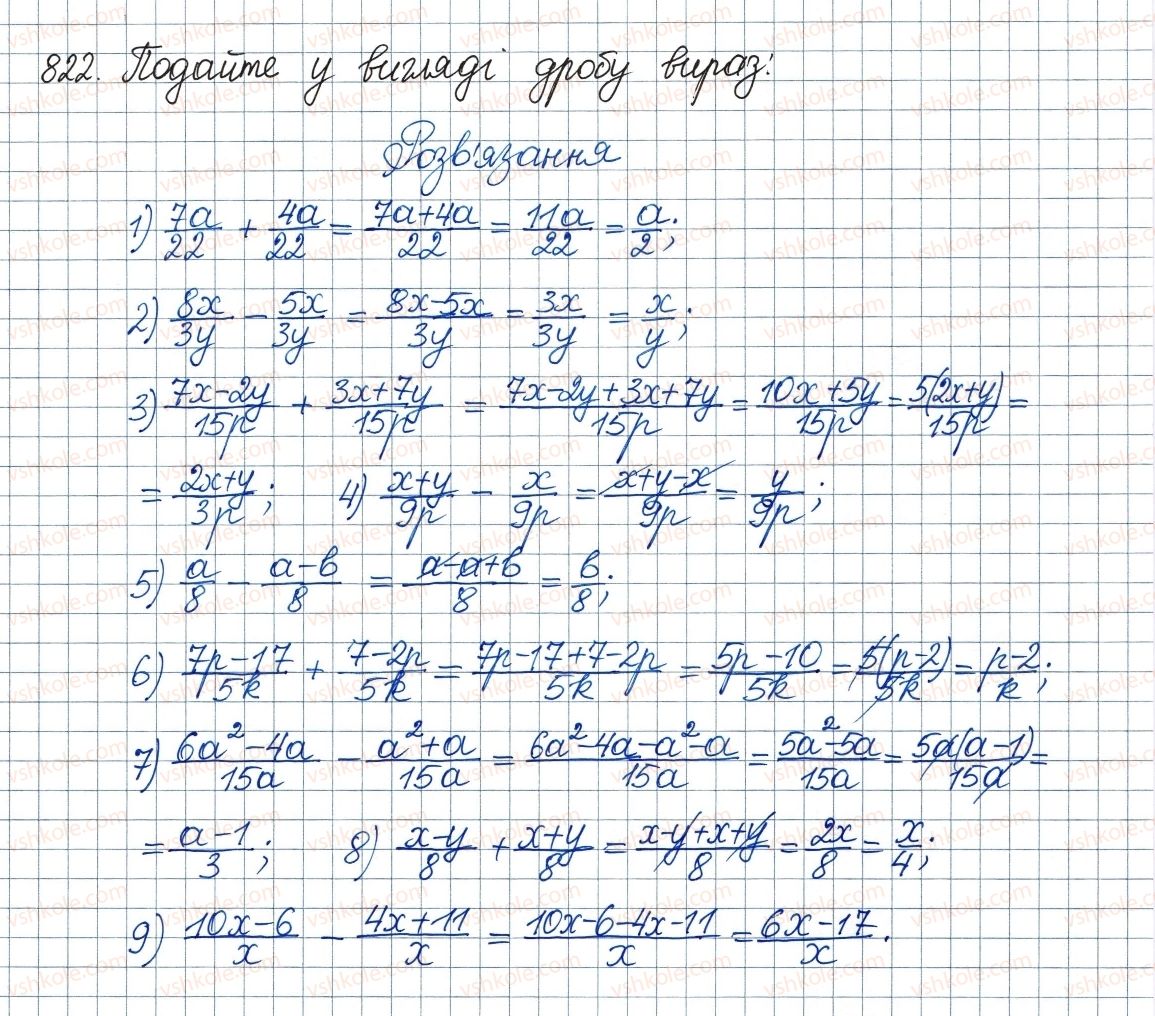 822. Подайте у вигляді дробу вираз:
Розв'язання
1) 7a/22 + 4a/22 = (7a+4a)/22 = 11a/22 = a/2;
2) 8x/3y − 5x/3y = (8x−5x)/3y = 3x/3y = x/y;
3) (7x−2y)/15p + (3x+7y)/15p = (7x−2y+3x+7y)/15p = (10x+5y)/15p = 5(2x+y)/15p =
= (2x+y)/3p; 4) (x+y)/9p − x/9p = (x+y−x)/9p = y/9p;
5) a/8 − (a−b)/8 = (a−a+b)/8 = b/8;
6) (7p−17)/5k + (7−2p)/5k = (7p−17+7−2p)/5k = (5p−10)/5k = 5(p−2)/5k = (p−2)/k;
7) (6a²−4a)/15a − (a²+a)/15a = (6a²−4a−a²−a)/15a = (5a²−5a)/15a = 5a(a−1)/15a =
= (a−1)/3; 8) (x−y)/8 + (x+y)/8 = (x−y+x+y)/8 = 2x/8 = x/4;
9) (10x−6)/x − (4x+11)/x = (10x−6−4x−11)/x = (6x−17)/x.